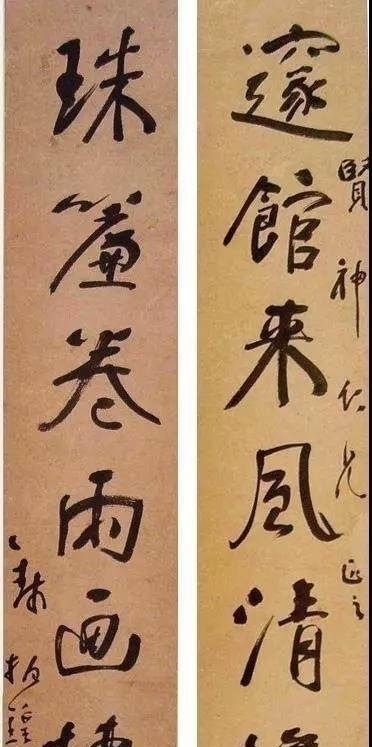 邃館来風清
賢神仁兄正之
珠簾卷雨画